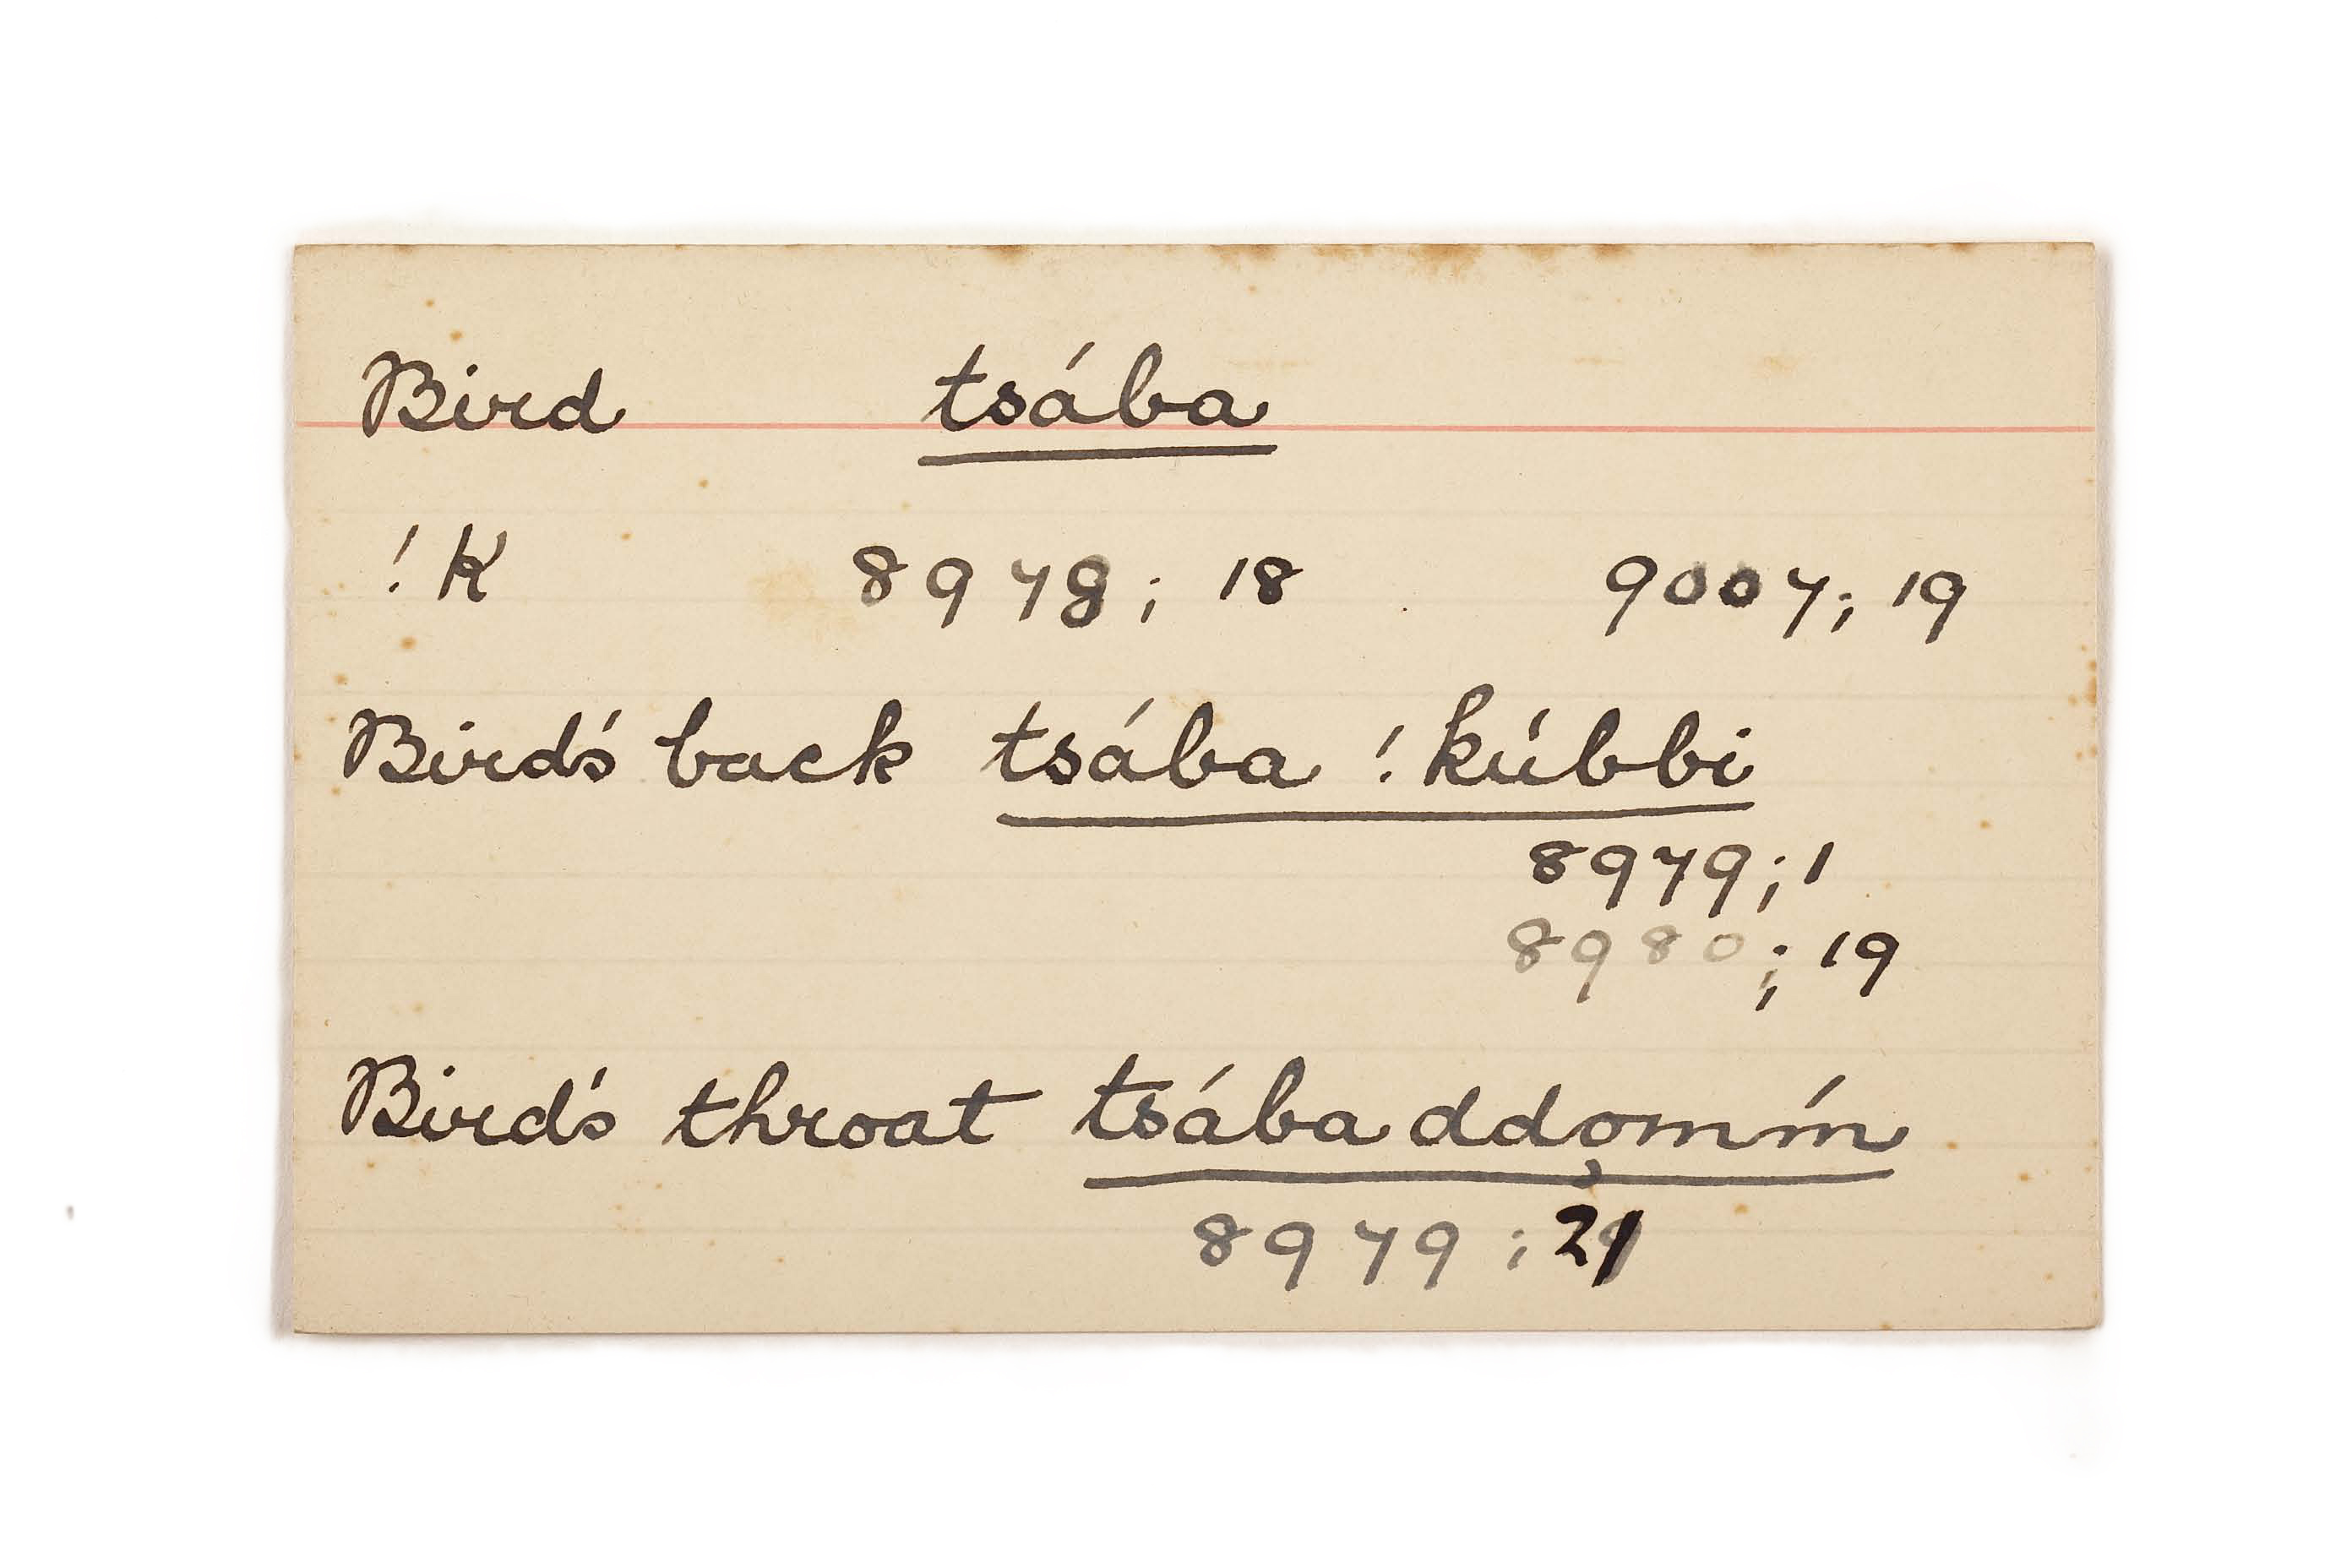 Bird tsába
!K 8978; 18 9007; 19
Bird's back tsába !kúbbi
8979; 1
8980; 19
Bird's throat tsába ddo̦mḿ
8979; 21